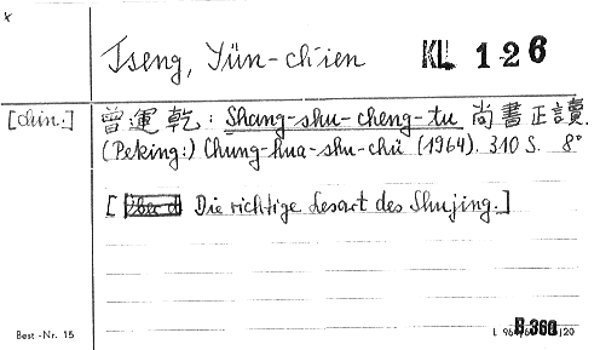 x
Tseng, Yün-ch'ien KL 126
[chin.] 曾運乾: Shang-shu-cheng-tu 尚書正讀.
(Peking:) Chung-hua-shu-chü (1964). 310 S. 8°
[Die richtige Lesart des Shujing.]
Best-Nr. 15 B 360